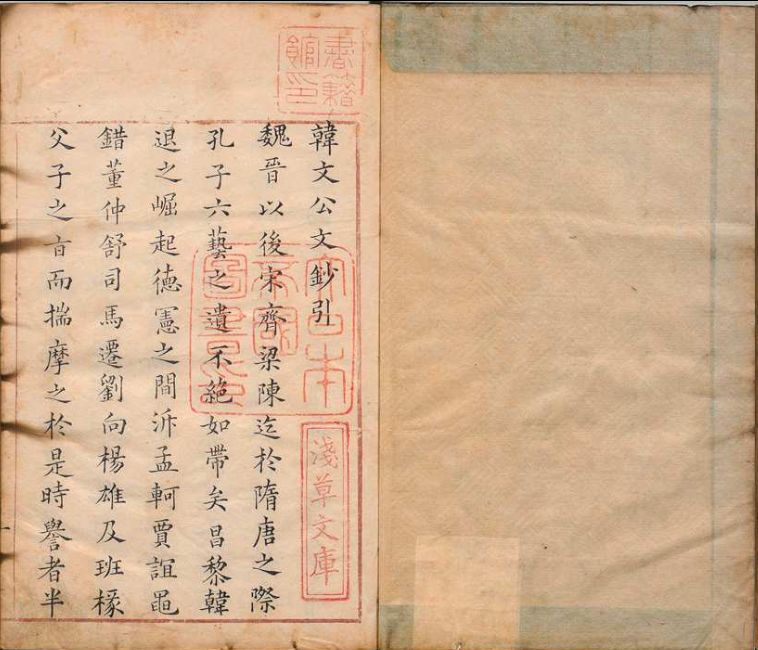 韓文公文鈔引
魏晉以後宋齊梁陳迄於隋唐之際
孔子六藝之遺不絕如帶矣昌黎韓
退之崛起德憲之間泝孟軻賈誼鼂
錯董仲舒司馬遷劉向楊雄及班椽
父子之㫖而揣摩之於是時譽者半
書籍館印
淺草文庫